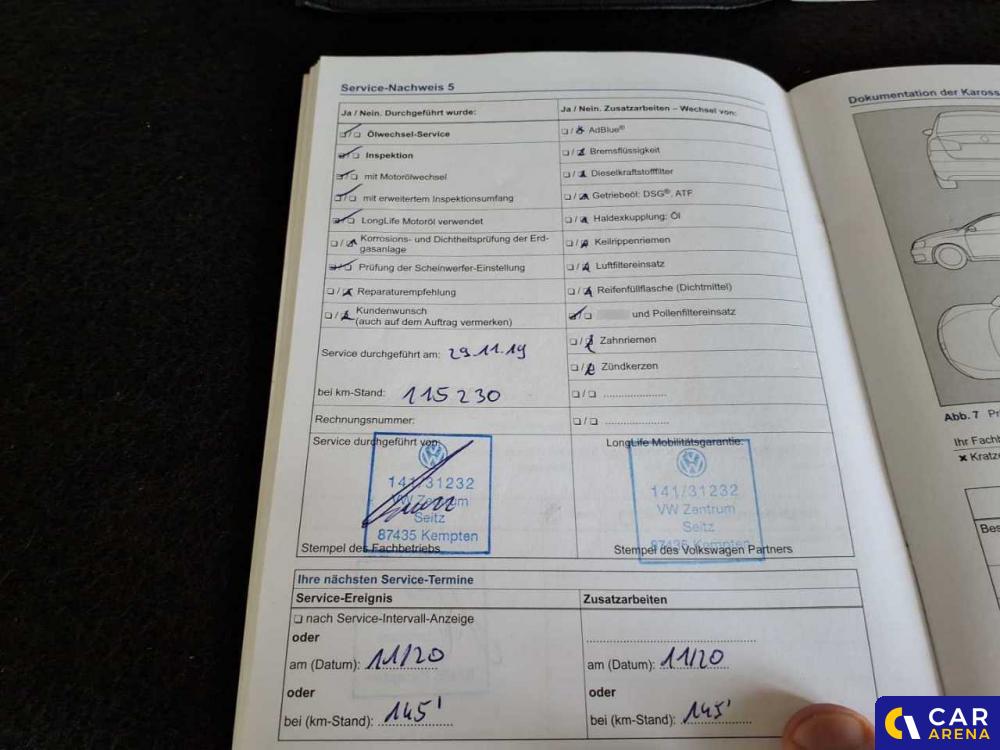 Service-Nachweis 5
Ja / Nein. Durchgeführt wurde:
Ölwechsel-Service
Inspektion
mit Motorölwechsel
mit erweitertem Inspektionsumfang
LongLife Motoröl verwendet
Korrosions- und Dichtheitsprüfung der Erd-
gasanlage
Prüfung der Scheinwerfer-Einstellung
Reparaturempfehlung
Kundenwunsch
(auch auf dem Auftrag vermerken)
Service durchgeführt am: 29.11.19
bei km-Stand: 115230
Rechnungsnummer:
Service durchgeführt von:
141/31232
VW Zentrum
Seitz
87435 Kempten
Stempel des Fachbetriebs
Ja / Nein. Zusatzarbeiten – Wechsel von:
AdBlue®
Bremsflüssigkeit
Dieselkraftstofffilter
Getriebeöl: DSG®, ATF
Haldexkupplung: Öl
Keilrippenriemen
Luftfiltereinsatz
Reifenfüllflasche (Dichtmittel)
und Pollenfiltereinsatz
Zahnriemen
Zündkerzen
LongLife Mobilitätsgarantie:
141/31232
VW Zentrum
Seitz
87435 Kempten
Stempel des Volkswagen Partners
Ihre nächsten Service-Termine
Service-Ereignis
nach Service-Intervall-Anzeige
oder
am (Datum): 11/20
oder
bei (km-Stand): 145'
Zusatzarbeiten
am (Datum): 11/20
oder
bei (km-Stand): 145'
Dokumentation der Kaross
Abb. 7 Pr
Ihr Fachb
Kratze
Bes
CAR
ARENA